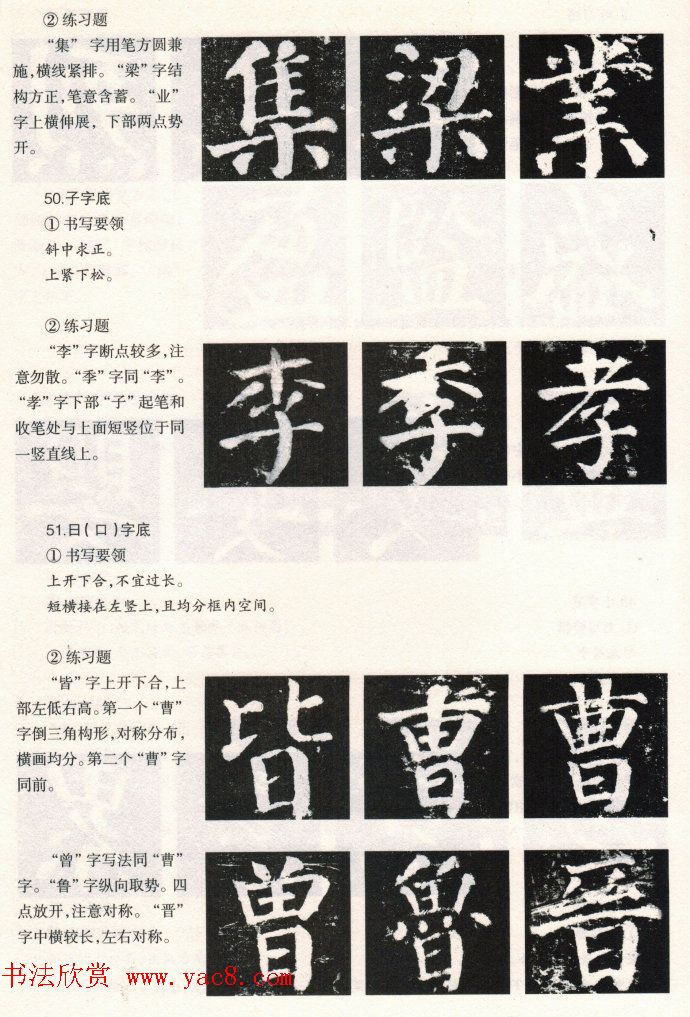 ② 练习题
“集” 字用笔方圆兼
施,横线紧排。“梁”字结
构方正,笔意含蓄。“业”
字上横伸展, 下部两点势
开。
集 梁 業
50.子字底
① 书写要领
斜中求正。
上紧下松。
② 练习题
“李”字断点较多,注
意勿散。“季”字同“李”。
“孝”字下部“子”起笔和
收笔处与上面短竖位于同
一竖直线上。
李 季 孝
51.日(口)字底
① 书写要领
上开下合,不宜过长。
短横接在左竖上,且均分框内空间。
② 练习题
“皆”字上开下合,上
部左低右高。第一个“曹”
字倒三角构形,对称分布,
横画均分。第二个“曹”字
同前。
皆 曹 曹
“曾”字写法同“曹”
字。“鲁”字纵向取势。四
点放开,注意对称。“晋”
字中横较长,左右对称。
曾 魯 晉
书法欣赏 www.yac8.com